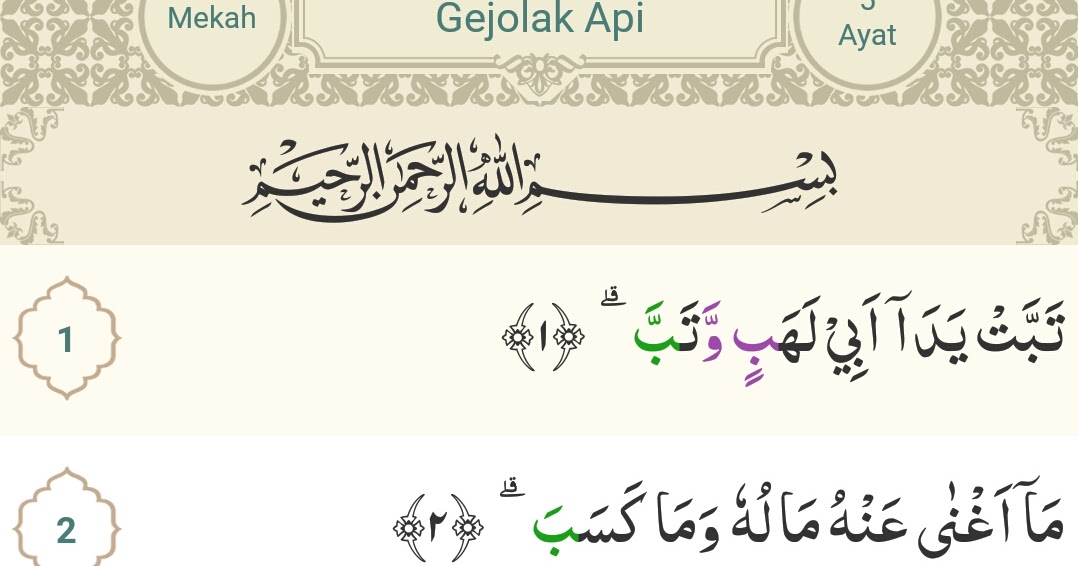 Mekah
Gejolak Api
5
Ayat
بِسْمِ اللّٰهِ الرَّحْمٰنِ الرَّحِيْمِ
1
تَبَّتْ يَدَآ اَبِيْ لَهَبٍ وَّتَبَّ ۗ ﴿١﴾
2
مَآ اَغْنٰى عَنْهُ مَالُهٗ وَمَا كَسَبَ ۗ ﴿٢﴾